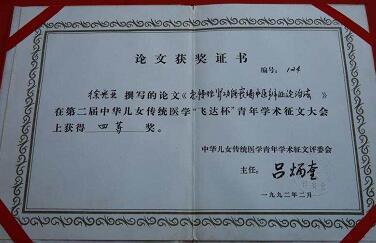 论文获奖证书
编号：124
徐光星 撰写的论文《慢性肾功能衰竭中医辨证论治法》
在第二届中华儿女传统医学“飞达杯”青年学术征文大会
上获得 四等 奖。
中华儿女传统医学青年学术征文评委会
主任：吕炳奎
一九九二年二月